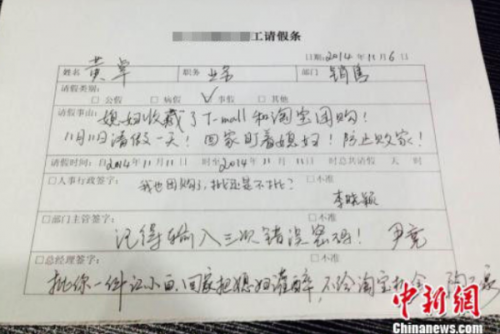 工请假条
日期:2014年11月6日
姓名 黄卓 职务 业务 部门 销售
请假类别:
□公假 □病假 □事假 □其他
请假事由: 媳妇收藏了T-mall和淘宝团购!
11月11日请假一天! 回家盯着媳妇! 防止败家!
请假时间:自2014年11月11日 时至2014年11月11日 时总共请假 天 时
□人事行政签字: □不准
我也团购了,批还是不批? 李晓颖
□部门主管签字: □不准
记得输入三次错误密码! 尹竞
□总经理签字: □不准
批你一件江小白,回家把媳妇灌醉,不给淘宝机会
中新网
Chinanews.com